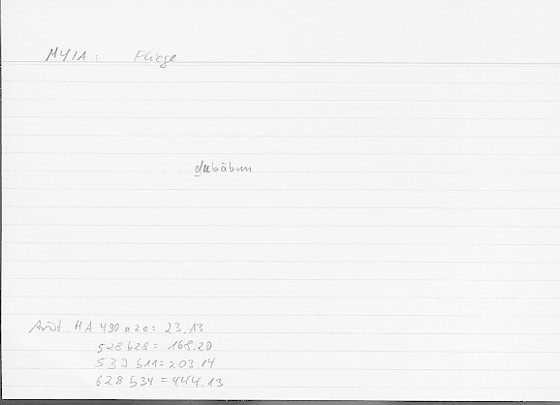 MYIA: Fliege
dubābun
Arist. HA 490 a 20 = 23.13
528 b28 = 168.20
532 b11 = 203.14
628 b34 = 444.13